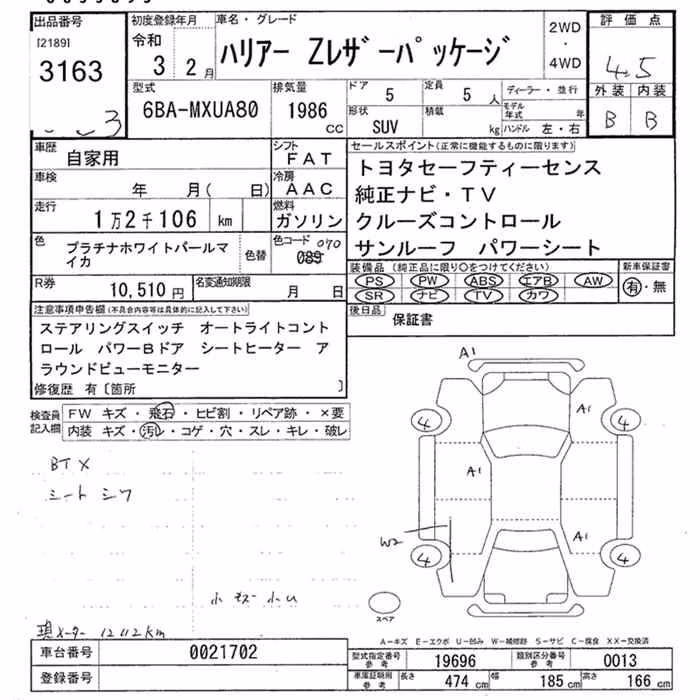 出品番号 初度登録年月 車名・グレード 2WD ・ 4WD 評価点
[2189] 令和
3163 3 2月 ハリアー Zレザーパッケージ 4.5
外装 内装
B B
型式 排気量 ドア 定員 ディーラー・並行
6BA-MXUA80 1986 CC 5 5 人 モデル年式 年
形状 積載
SUV kg ハンドル 左・右
車歴 自家用 シフト FAT
車検 年 月( 日) 冷房 AAC
走行 1万2千106 km 燃料 ガソリン
色 プラチナホワイトパールマイカ 色替 色コード 070
089
R券 10,510円 名変通知期限 月 日
セールスポイント(正常に機能するものに限ります)
トヨタセーフティーセンス
純正ナビ・TV
クルーズコントロール
サンルーフ パワーシート
装備品(純正品に限り○をつけてください) 新車保証書
PS PW ABS エアB AW 有・無
SR ナビ TV カワ
後日品 保証書
注意事項申告欄(不具合内容等は具体的に記入して下さい)
ステアリングスイッチ オートライトコント
ロール パワーBドア シートヒーター ア
ラウンドビューモニター
修復歴 有〔箇所 〕
検査員記入欄 FW キズ・飛石・ヒビ割・リペア跡・×要
内装 キズ・汚レ・コゲ・穴・スレ・キレ・破レ
BTX
シート シワ
小キズ 小U
現メーター 12112km
A1
4 A1 4
A1
W2 A1
4 4
スペア
A-キズ E-エクボ U-凹み W-補修跡 S-サビ C-腐食 XX-交換済
車台番号 0021702
登録番号
型式指定番号 参考 19696 類別区分番号 参考 0013
車庫証明用 参考 長さ 474 cm 幅 185 cm 高さ 166 cm